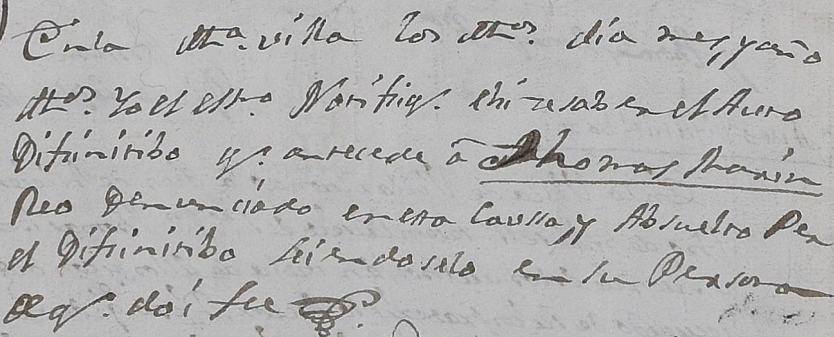 En la dha. villa los dhos. dia mes, y año
dhos. Yo el essno. Notifiqe. e hize saber el Auto
Difinitibo qe. antecede â Thomas Marin
Reo Denunciado en esta Caussa, y Absuelto Por
el Difinitibo leiendoselo en su Persona
de qe. doi fee